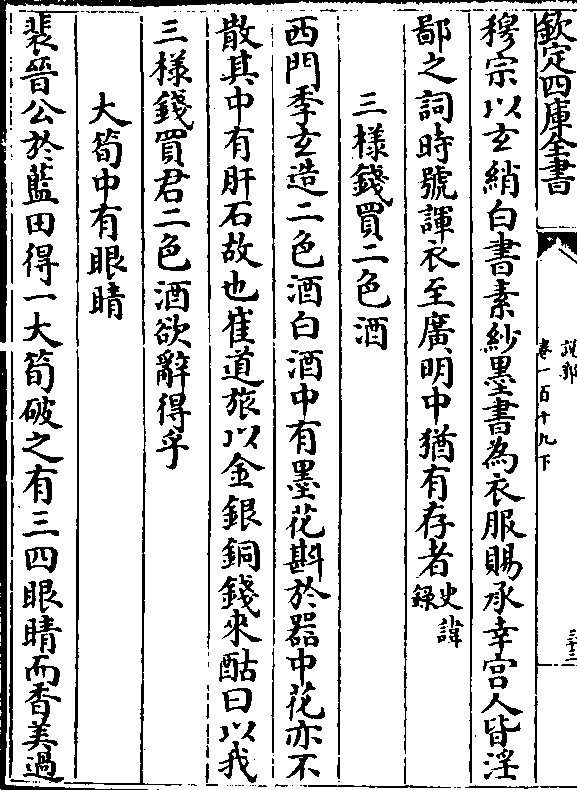 欽定四庫全書
說郛
卷一百十九下
三十三
穆宗以玄綃白書素紗墨書為衣服賜承幸宫人皆淫
鄙之詞時號諢衣至廣明中猶有存者史諱錄
三様錢買二色酒
西門季玄造二色酒白酒中有墨花斟於器中花亦不
散其中有肝石故也崔道旅以金銀銅錢來酤曰以我
三様錢買君二色酒欲辭得乎
大筍中有眼睛
裴晉公於藍田得一大筍破之有三四眼睛而香美過